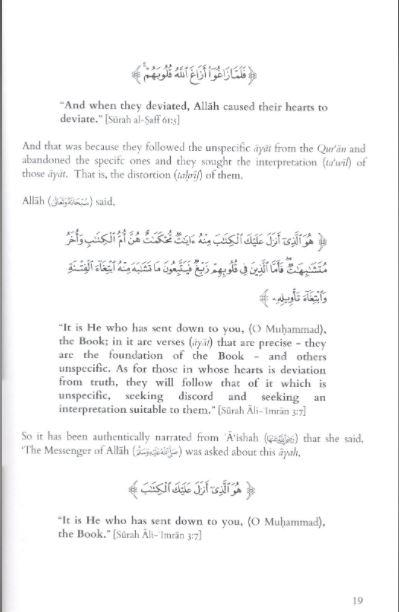 ﴿ فَلَمَّا زَاغُوٓا۟ أَزَاغَ ٱللَّهُ قُلُوبَهُمْ ۚ ﴾
“And when they deviated, Allāh caused their hearts to
deviate.” [Sūrah al-Ṣaff 61:5]
And that was because they followed the unspecific āyāt from the Qur'ān and
abandoned the specifc ones and they sought the interpretation (ta'wīl) of
those āyāt. That is, the distortion (taḥrīf) of them.
Allāh (سُبْحَانَهُ وَتَعَالَى) said,
﴿ هُوَ ٱلَّذِىٓ أَنزَلَ عَلَيْكَ ٱلْكِتَـٰبَ مِنْهُ ءَايَـٰتٌ مُّحْكَمَـٰتٌ هُنَّ أُمُّ ٱلْكِتَـٰبِ وَأُخَرُ
مُتَشَـٰبِهَـٰتٌ ۖ فَأَمَّا ٱلَّذِينَ فِى قُلُوبِهِمْ زَيْغٌ فَيَتَّبِعُونَ مَا تَشَـٰبَهَ مِنْهُ ٱبْتِغَآءَ ٱلْفِتْنَةِ
وَٱبْتِغَآءَ تَأْوِيلِهِۦ ﴾
“It is He who has sent down to you, (O Muḥammad),
the Book; in it are verses (āyāt) that are precise – they
are the foundation of the Book – and others
unspecific. As for those in whose hearts is deviation
from truth, they will follow that of it which is
unspecific, seeking discord and seeking an
interpretation suitable to them.” [Sūrah Āli-'Imrān 3:7]
So it has been authentically narrated from 'Ā'ishah (رضي الله عنها) that she said,
‘The Messenger of Allāh (صلى الله عليه وسلم) was asked about this āyah,
﴿ هُوَ ٱلَّذِىٓ أَنزَلَ عَلَيْكَ ٱلْكِتَـٰبَ ﴾
“It is He who has sent down to you, (O Muḥammad),
the Book.” [Sūrah Āli-'Imrān 3:7]
19